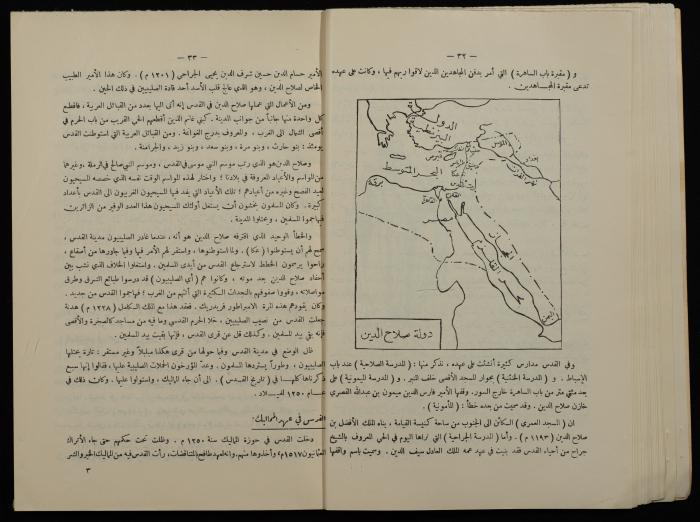 — ٣٢ —
و ( مقبرة باب الساهرة ) التي أمر بدفن المجاهدين الذين لاقوا ربهم فيها ، وكانت على عهده
تدعى مقبرة المجاهدين .
الدولة
البيزنطية
البحر المتوسط
قبرص
عكا
القدس
دمشق
بغداد
القاهرة
مصر
برقة
اليمن
دولة صلاح الدين
وفي القدس مدارس كثيرة أنشئت على عهده ، نذكر منها : ( المدرسة الصلاحية ) عند باب
الأسباط . و ( المدرسة الخثنية ) بجوار المسجد الأقصى خلف المنبر . و ( المدرسة الميمونية ) على
بعد مئتي متر من باب الساهرة خارج السور . وقفها الأمير فارس الدين ميمون بن عبدالله القصري
خازن صلاح الدين . وقد سميت من بعده خطأ : ( المأمونية ) .
ان ( المسجد العمري ) الكائن الى الجنوب من ساحة كنيسة القيامة ، بناه الملك الأفضل بن
صلاح الدين ( ١١٩٣ م ) . وأما ( المدرسة الجراحية ) التي تراها اليوم في الحي المعروف بالشيخ
جراح من أحياء القدس فقد بنيت في عهد عمه الملك العادل سيف الدين . وسميت باسم واقفها
— ٣٣ —
الأمير حسام الدين حسين شرف الدين يحيى الجراحي ( ١٢٠١ م ) . وكان هذا الأمير الطبيب
الخاص لصلاح الدين ، وهو الذي عالج قلب الأسد أحد قادة الصليبيين في ذلك الحين .
ومن الأعمال التي عملها صلاح الدين في القدس إنه أتى اليها بعدد من القبائل العربية ، فاقطع
كل واحدة منها جانباً من جوانب المدينة . كبني غانم الذين أقطعهم الحي القريب من باب الحرم في
أقصى الشمال الى الغرب ، والمعروف بدرج الغوانمة . ومن القبائل العربية التي استوطنت القدس
يومئذ : بنو حارث ، وبنو مرة ، وبنو سعد ، وبنو زيد ، والجرامنة .
وصلاح الدين هو الذي رتب موسم النبي موسى في القدس ، وموسم النبي صالح في الرملة . وغيرهما
من المواسم والأعياد المعروفة في بلادنا ؛ واختار لهذه المواسم الوقت نفسه الذي خصصه المسيحيون
لعيد الفصح وغيره من أعيادهم ؛ تلك الأعياد التي يفد فيها المسيحيون الغربيون الى القدس بأعداد
كبيرة . وكان المسلمون يخشون أن يستغل أولئك المسيحيون هذا العدد الوفير من الزائرين
فيهاجموا المسلمين ، ويحتلوا المدينة .
والخطأ الوحيد الذي اقترفه صلاح الدين هو أنه ، عندما غادر الصليبيون مدينة القدس ،
سمح لهم أن يستوطنوا ( عكا ) . ولما استوطنوها ، واستقر لهم الأمر فيها وفيما جاورها من أصقاع ،
راحوا يرسمون الخطط لاسترجاع القدس من أيدي المسلمين . واستغلوا الخلاف الذي نشب بين
أحفاد صلاح الدين بعد موته ، وكانوا هم ( أي الصليبيون ) قد درسوا طبائع الشرق وطرق
مواصلاته ، وقووا صفوفهم بالنجدات الكثيرة التي أتتهم من الغرب ؛ فهاجموا القدس من جديد .
وكان يقودهم هذه المرة الامبراطور فريدريك . فعقد هذا مع الملك الكامل ( ١٢٢٨ م ) هدنة
جعلت القدس من نصيب الصليبيين ، خلا الحرم القدسي وما فيه من مساجد كالصخرة والأقصى
فإنه بقي بيد المسلمين . وكذلك قل عن قرى القدس ، فإنها بقيت بيد المسلمين .
ظل الوضع في مدينة القدس وفيما حولها من قرى هكذا مبلبلاً وغير مستقر : تارة يحتلها
الصليبيون ، وطوراً يستردها المسلمون . وعدّ المؤرخون الحملات الصليبية عليها ، فقالوا إنها سبع
ذكرناها كلها في ( تاريخ القدس ) . الى أن جاء المماليك ، واستولوا عليها . وكان ذلك في
عام ١٢٥٠ للميلاد .
القدس في عهد المماليك :
دخلت القدس في حوزة المماليك سنة ١٢٥٠ م . وظلت تحت حكمهم حتى جاء الأتراك
العثمانيون ١٥١٧م وأخذوها منهم . وانه لعهد طافح بالمتناقضات ، رأت القدس فيه من المماليك الخير والشر
٣